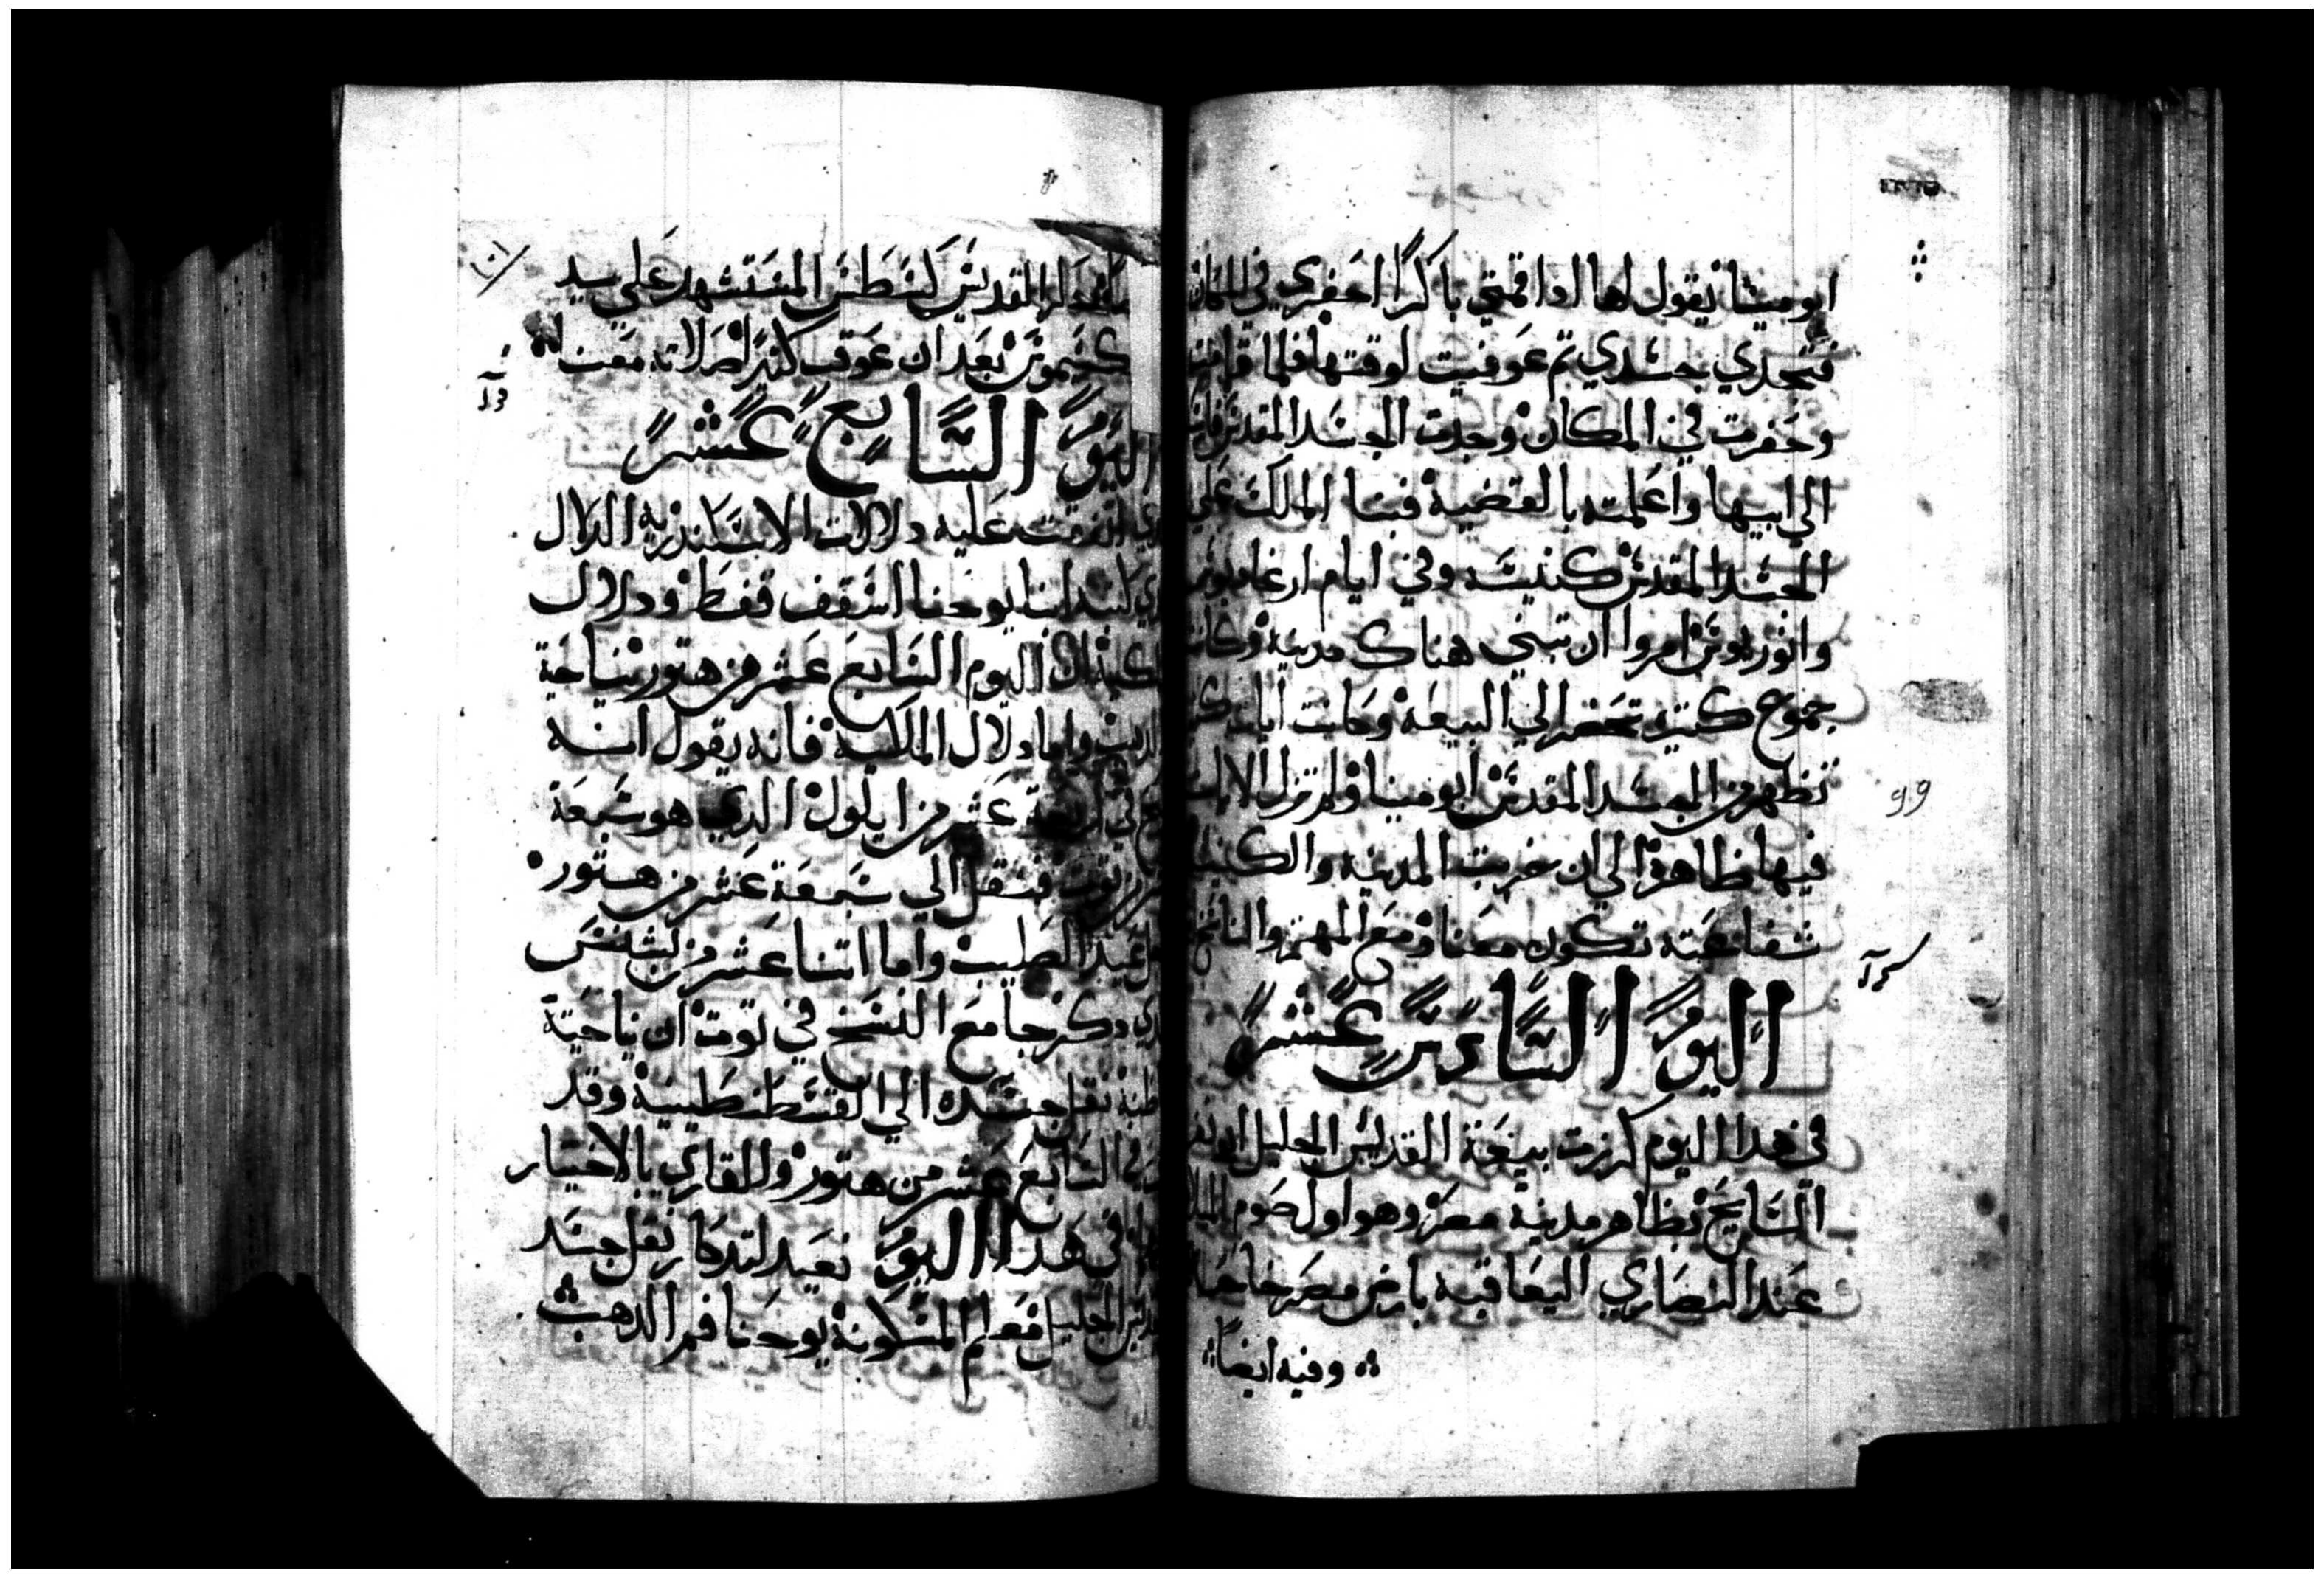 ابو مينا يقول لها اذا قمتي باكرا احفري في المكان
فتجدي جسدي ثم عوفيت لوقتها فلما قامت
وحفرت في المكان وجدت الجسد المقدس
الي ابيها واعلمته بالقضية فبنا الملك علي
الجسد المقدس كنيسه وفي ايام ارغاديوس
وانوريوس امروا ان تبني هناك مدينة وكانت
جموع كتيره تحضر الي البيعة وكانت ايات
تظهر من الجسد المقدس ابو مينا ولم تزل الايات
فيها ظاهرة الي ان خربت المدينه والكنيسة
شفاعته تكون معنا ومع المهتم والناسخ
اليوم السادس عشر
في هدا اليوم كرزت بيعة القديس الجليل ابو نفر
السايح بظاهر مدينة مصر وهو اول صوم الميلاد
عند النصاري اليعاقبه بارض مصر خاصة
وفيه ايضا
99
المقديس لسطس المستشهد علي يد
بعد ان عوقب كتيرا صلاته معنا
اليوم السابع عشر
اتفقت عليه دلالات الاسكندرية الدلال
انبا يوحنا اسقف قفط ودلال
اليوم السابع عشر من هتور نياحة
واما دلال الملكية فانه يقول انه
في اربعة عشر من ايلول الدي هو سبعة
توت فنقل الي سبعة عشر من هتور
عيد الصليب واما اتنا عشر من
دكر جامع النسخ في توت ان نياحته
نقل جسده الي القسطنطينية وقد
في السابع عشر من هتور وللقاري بالاختيار
في هدا اليوم نعيد لتدكار نقل جسد
الجليل معلم المسكونة يوحنا فم الدهب